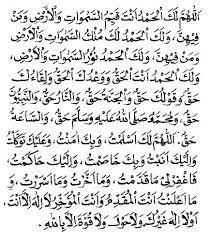 اَللّٰهُمَّ لَكَ الْحَمْدُ اَنْتَ قَيِّمُ السَّمٰوَاتِ وَالْاَرْضِ وَمَنْ
فِيْهِنَّ، وَلَكَ الْحَمْدُ لَكَ مُلْكُ السَّمٰوَاتِ وَالْاَرْضِ
وَمَنْ فِيْهِنَّ، وَلَكَ الْحَمْدُ نُوْرُ السَّمٰوَاتِ وَالْاَرْضِ
وَلَكَ الْحَمْدُ اَنْتَ الْحَقُّ وَوَعْدُكَ الْحَقُّ، وَلِقَاءُكَ
حَقٌّ وَقَوْلُكَ حَقٌّ وَالْجَنَّةُ حَقٌّ، وَالنَّارُ حَقٌّ، وَالنَّبِيُّوْنَ
حَقٌّ، وَمُحَمَّدٌ صَلَّى اللهُ عَلَيْهِ وَسَلَّمَ حَقٌّ، وَالسَّاعَةُ
حَقٌّ. اَللّٰهُمَّ لَكَ اَسْلَمْتُ، وَبِكَ اٰمَنْتُ، وَعَلَيْكَ تَوَكَّلْتُ
وَاِلَيْكَ اَنَبْتُ وَبِكَ خَاصَمْتُ، وَاِلَيْكَ حَاكَمْتُ،
فَاغْفِرْلِيْ مَا قَدَّمْتُ، وَمَا اَخَّرْتُ وَمَا اَسْرَرْتُ، وَ
مَا اَعْلَنْتُ اَنْتَ الْمُقَدِّمُ وَاَنْتَ الْمُؤَخِّرُ لَا اِلٰهَ اِلَّا اَنْتَ،
اَوْ لَا اِلٰهَ غَيْرُكَ وَلَا حَوْلَ، وَلَا قُوَّةَ اِلَّا بِاللهِ.